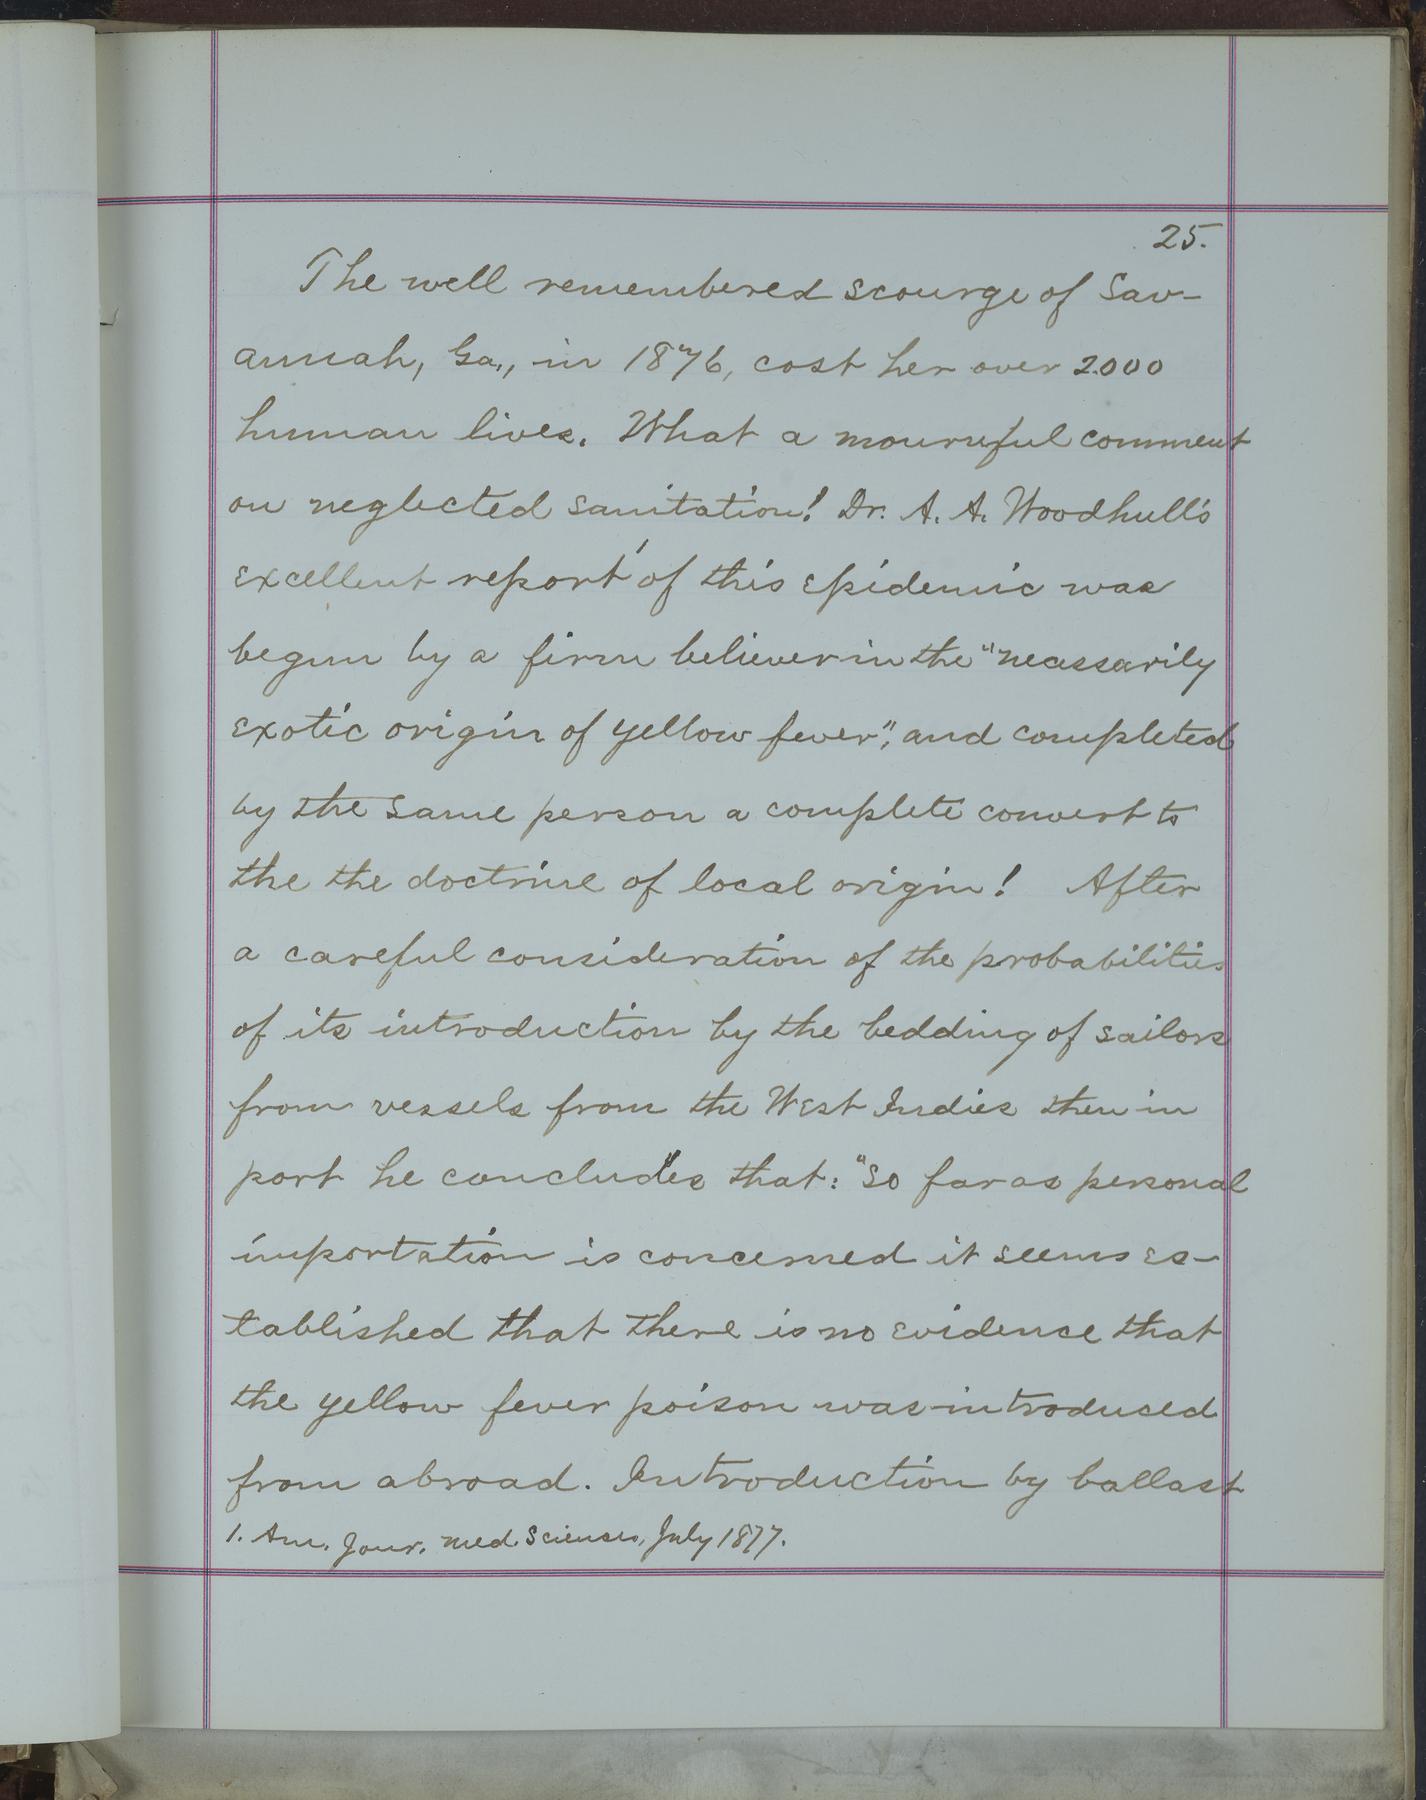 25.
The well remembered scourge of Sav-
annah, Ga., in 1876, cost her over 2000
human lives. What a mournful comment
on neglected sanitation! Dr. A. A. Woodhull's
excellent report¹ of this epidemic was
begun by a firm believer in the "necessarily
exotic origin of yellow fever", and completed
by the same person a complete convert to
the the doctrine of local origin! After
a careful consideration of the probabilities
of its introduction by the bedding of sailors
from vessels from the West Indies then in
port he concludes that: "So far as personal
importation is concerned it seems es-
tablished that there is no evidence that
the yellow fever poison was introduced
from abroad. Introduction by ballast
1. Am. Jour. Med. Sciences, July 1877.